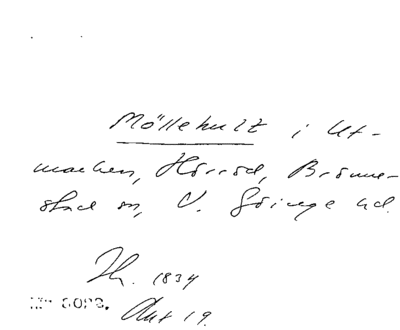 Möllehult i Ut-
marken, Hörröd, Brönne-
stad sn, V. Göinge hd.
Th. 1834
Akt 19.